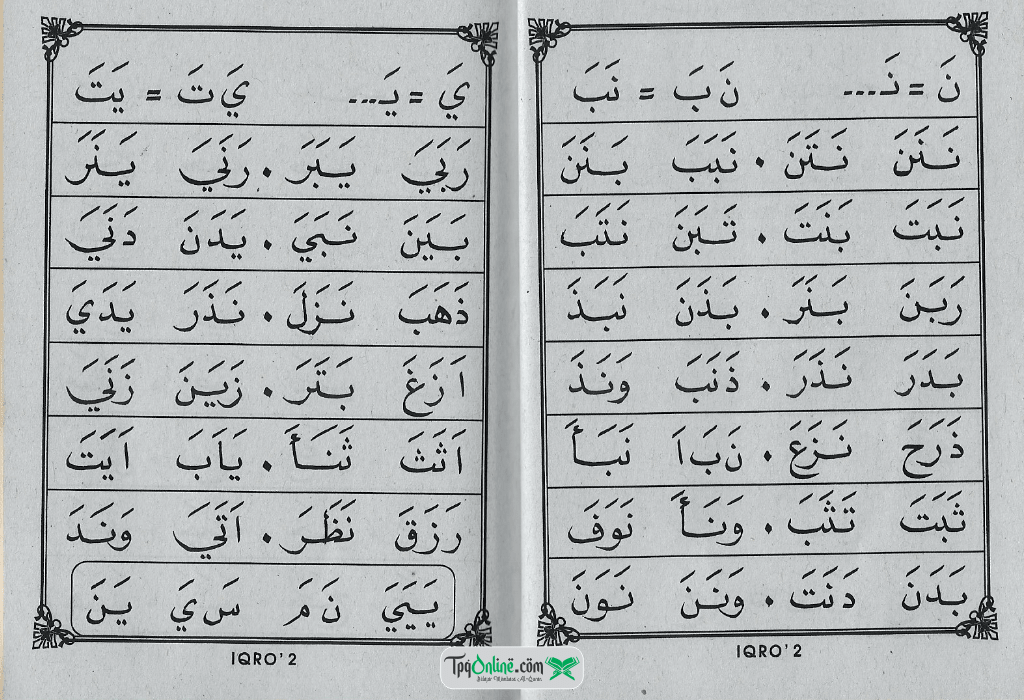 نَ = نَـ...   نَ بَ = نَبَ
نَنَنَ   نَتَنَ . نَبَبَ   بَنَنَ
نَبَتَ   بَنَتَ . تَبَنَ   نَتَبَ
رَبَنَ   بَنَرَ . بَذَنَ   نَبَذَ
بَدَرَ   نَذَرَ . ذَنَبَ   وَنَذَ
ذَرَحَ   نَزَعَ . نَ بَ اَ   نَبَأَ
ثَبَتَ   تَثَبَ . وَنَأَ   نَوَفَ
بَدَنَ   دَنَتَ . وَنَنَ   نَوَنَ
IQRO' 2
يَ = يَـ...   يَ تَ = يَتَ
رَبَيَ   يَبَرَ . رَنَيَ   يَنَرَ
بَيَنَ   نَبَيَ . يَدَنَ   دَنَيَ
ذَهَبَ   نَزَلَ . نَذَرَ   يَدَيَ
اَزَغَ   بَتَرَ . زَيَنَ   زَنَيَ
اَثَثَ   ثَنَأَ . يَاَبَ   اَيَتَ
رَزَقَ   نَظَرَ . اَتَيَ   وَنَدَ
يَيَيَ   نَ مَ   سَ يَ   يَنَ
IQRO' 2
TpqOnline.com
Belajar Membaca Al-Quran